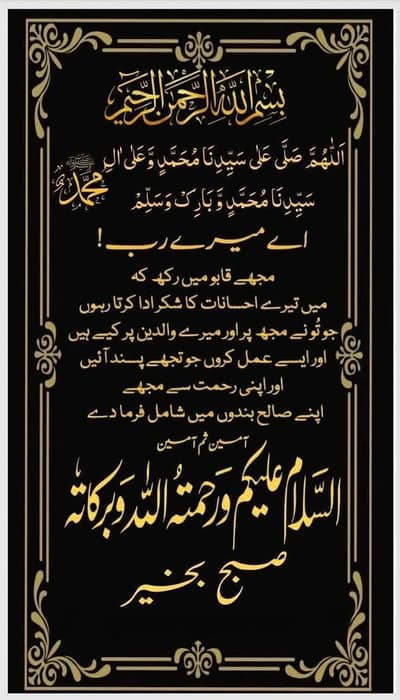 بسم الله الرحمن الرحیم
اَللّٰهُمَّ صَلِّی عَلٰی سَیِّدِنَا مُحَمَّدٍ وَّعَلٰی اٰلِ
سَیِّدِنَا مُحَمَّدٍ وَّبَارِکْ وَسَلِّمْ
محمد ﷺ
اے میرے رب !
مجھے قابو میں رکھ کہ
میں تیرے احسانات کا شکر ادا کرتا رہوں
جو تُو نے مجھ پر اور میرے والدین پر کیے ہیں
اور ایسے عمل کروں جو تجھے پسند آئیں
اور اپنی رحمت سے مجھے
اپنے صالح بندوں میں شامل فرما دے
آمین ثم آمین
السَّلامُ علیکم وَرَحمتہُ اللہ وَبرکاتہٗ
صبح بخیر